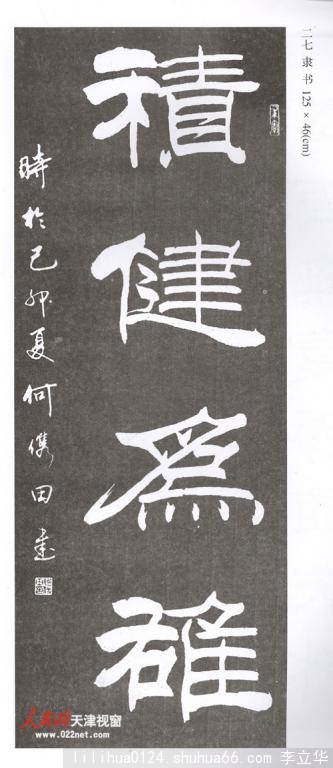 二七 隶 书 125×46(cm)
積健爲雄
時於己卯夏何儁田書
人民网 天津视窗
www.022net.com
lilihua0124.shuhua66.com 李立华